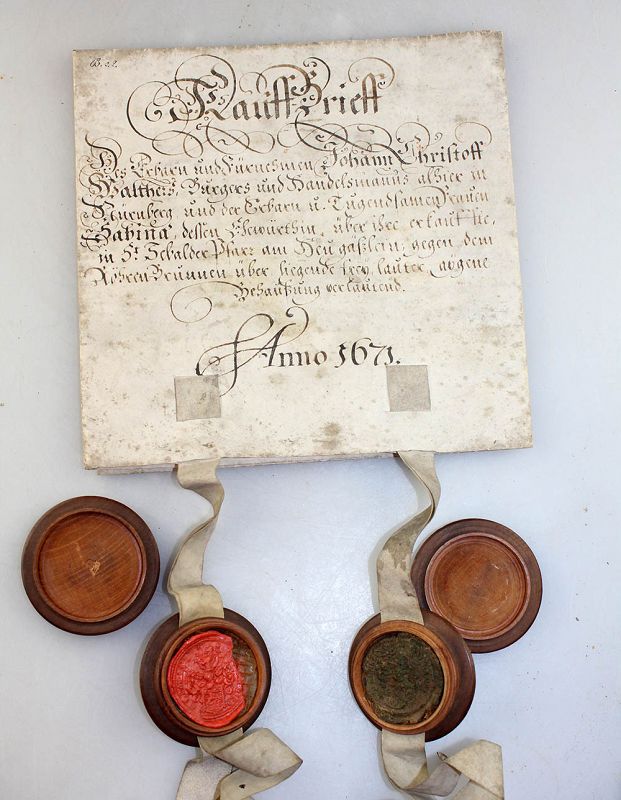 B. 22.
Kauff Brieff
Des Erbarn und Fürnehmen Johann Christoff
Walthers, Burgers und Handelsmanns alhier in
Nürnberg und der Erbarn u. Tugendsamen Frauen
Sabina, dessen Ehewürthin, über ihre erkaufte,
in St. Sebalder Pfarr am Heugäßlein, gegen dem
Röhren Brunnen über liegende frey lauter aygene
Behaußung verlautend.
Anno 1671.